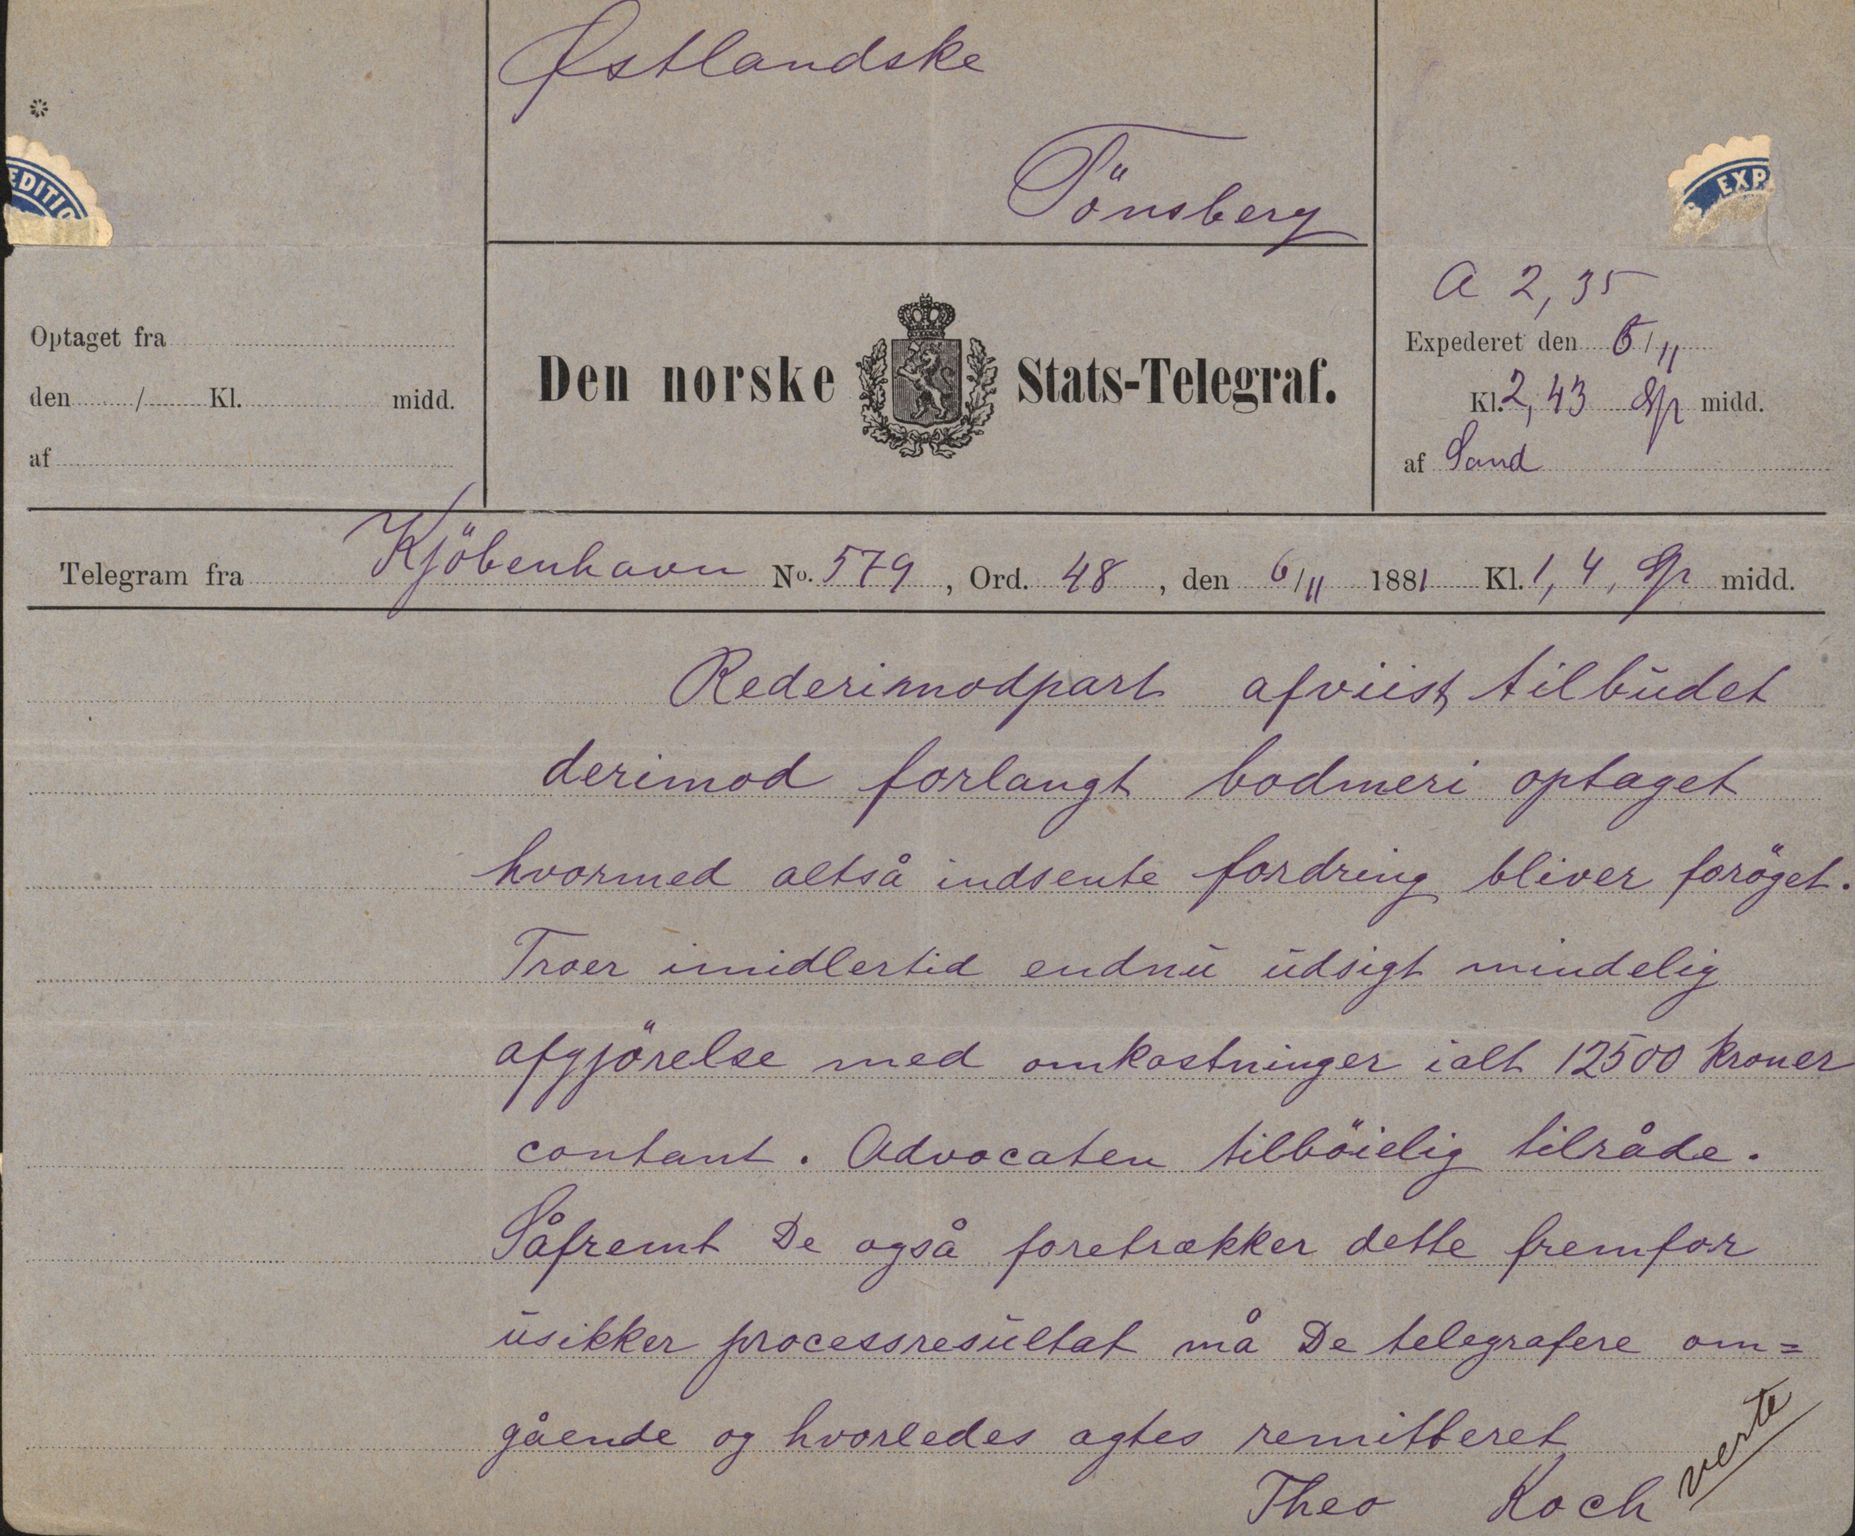 Østlandske
Tönsberg
EDITIO
EXP
A 2,35
Optaget fra
den / Kl. midd.
af
Den norske Stats-Telegraf.
Expederet den 6/11
Kl. 2,43 Ep midd.
af Sand
Telegram fra Kjöbenhavn No. 579, Ord. 48, den 6/11 1881 Kl. 1,4, Ep midd.
Rederimodpart afviist tilbudet
derimod forlangt bodmeri optaget
hvormed altså indsente fordring bliver foröget.
Troer imidlertid endnu udsigt mindelig
afgjörelse med omkostninger ialt 12500 kroner
contant. Advocaten tilböielig tilråde.
Såfremt De også foretrækker dette fremfor
usikker processresultat må De telegrafere om=
gående og hvorledes agtes remitteret
Theo Koch
verte